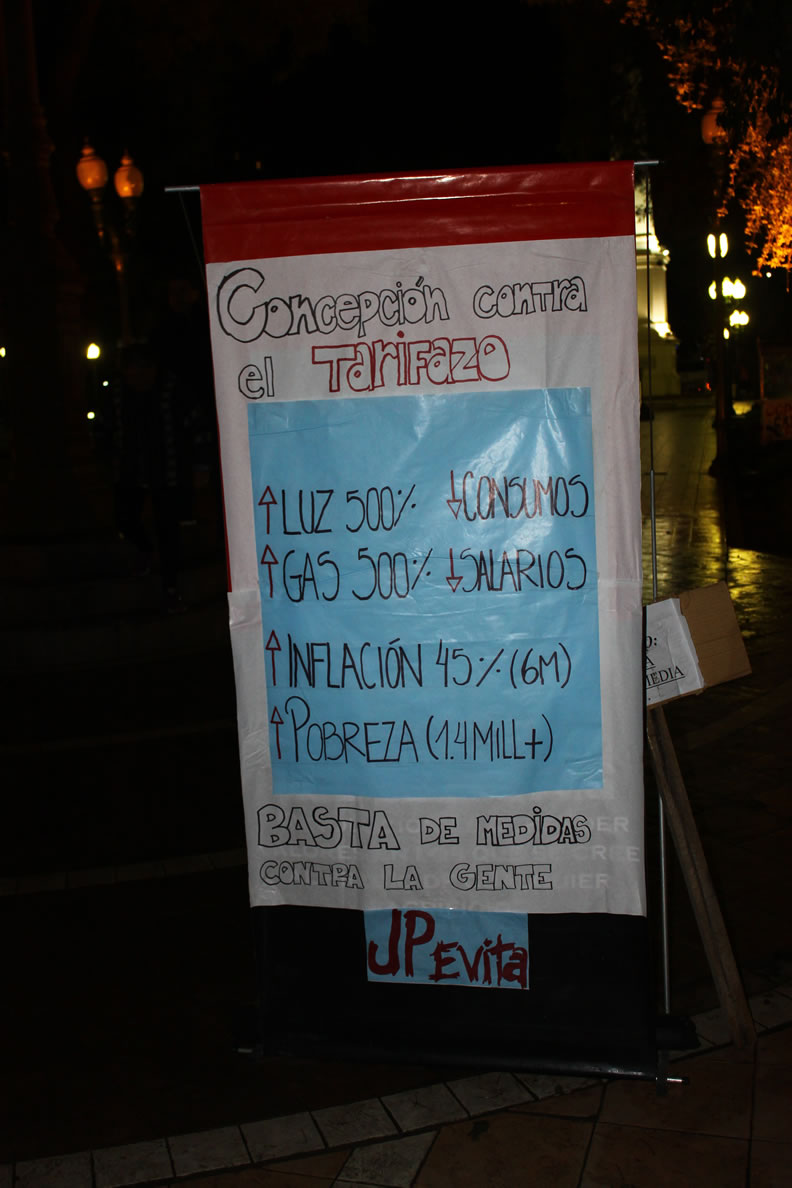 Concepción contra
el Tarifazo
↑LUZ 500% ↓CONSUMOS
↑GAS 500% ↓SALARIOS
↑INFLACIÓN 45% (6M)
↑POBREZA (1.4 MILL+)
BASTA DE MEDIDAS
CONTRA LA GENTE
JP Evita